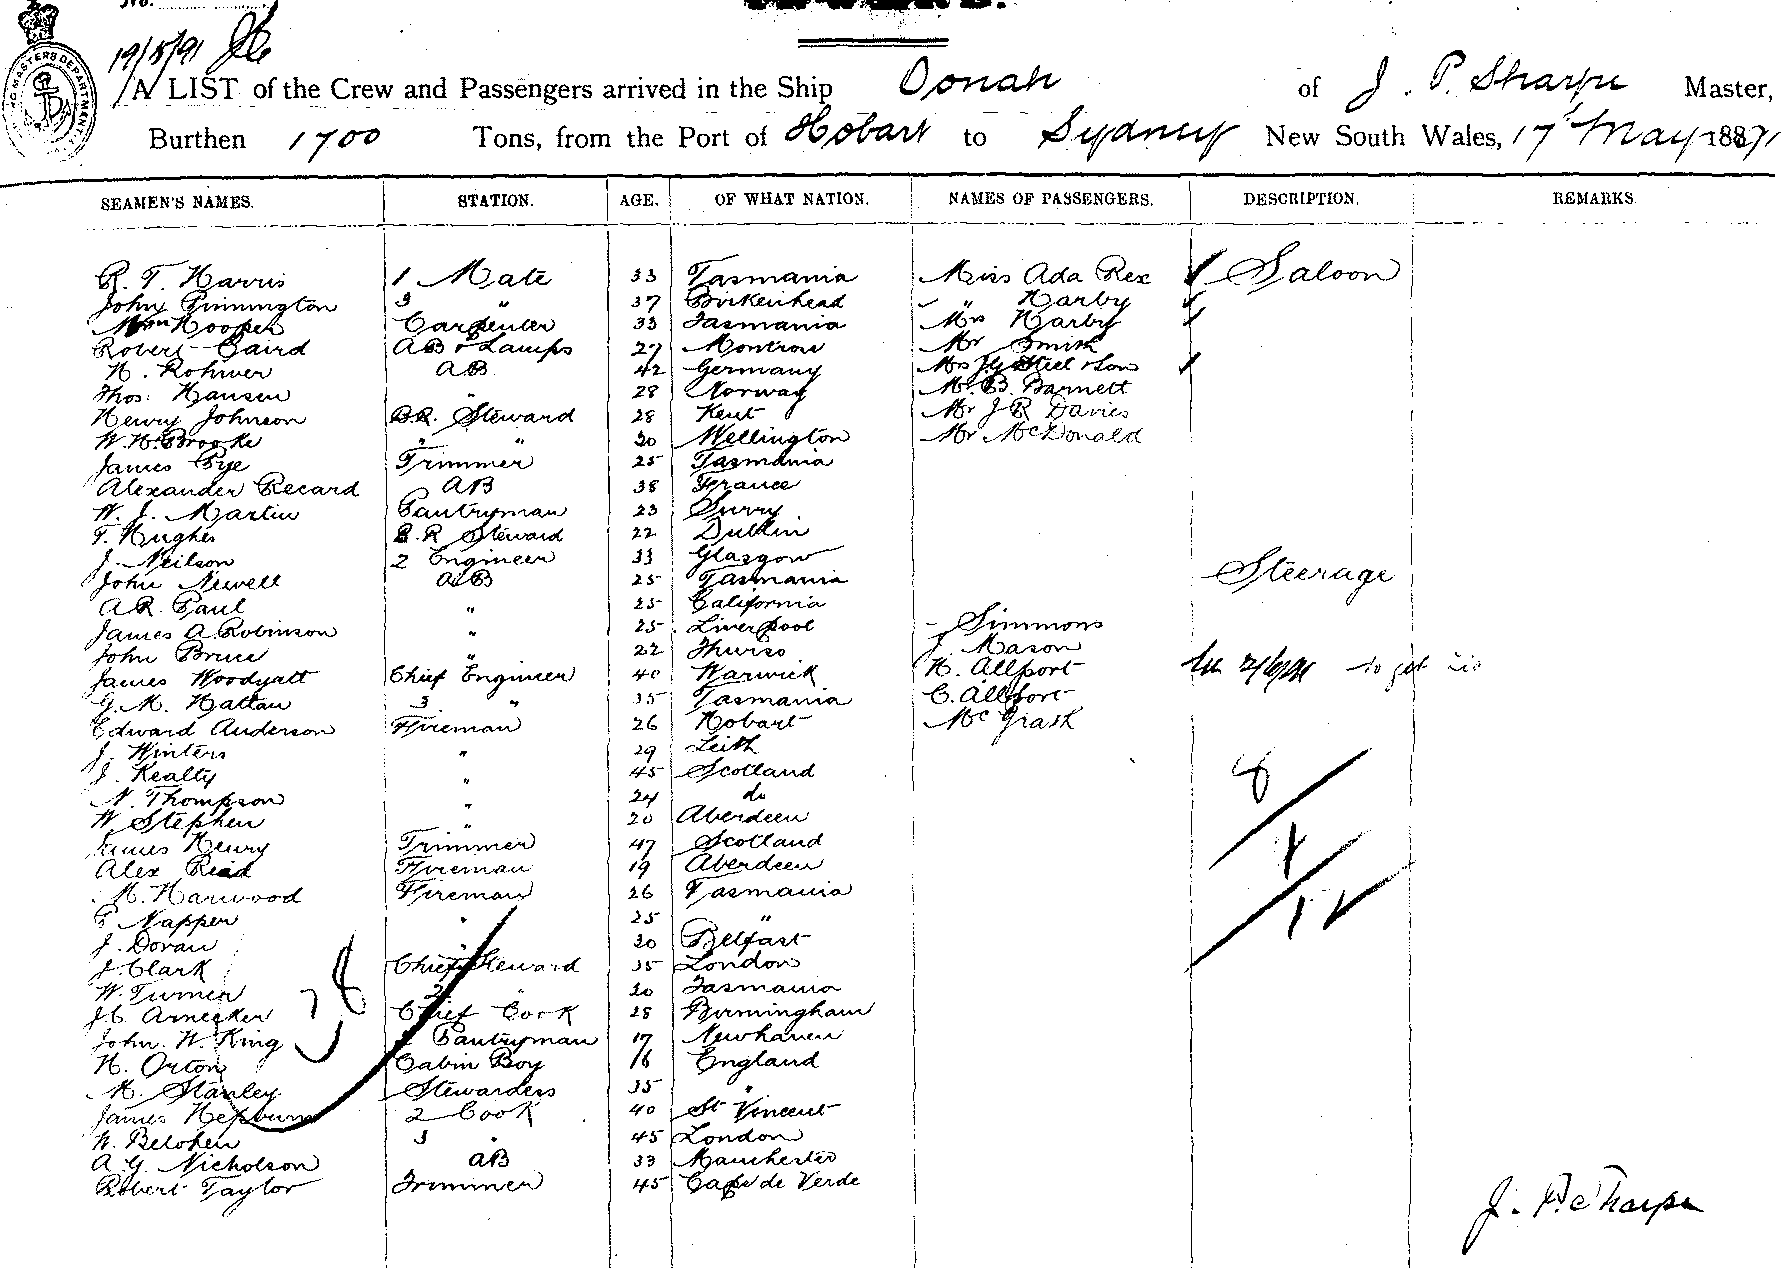 No.
19/5/91
A LIST of the Crew and Passengers arrived in the Ship Oonah of J. P. Sharpe Master,
Burthen 1700 Tons, from the Port of Hobart to Sydney New South Wales, 17 May 1891
SEAMEN'S NAMES. STATION. AGE. OF WHAT NATION. NAMES OF PASSENGERS. DESCRIPTION. REMARKS
R. T. Harris 1 Mate 33 Tasmania Miss Ada Rex Saloon
John Pinnington 3 " 37 Birkenhead " Harby
Wm Hooper Carpenter 33 Tasmania Mrs Harby
Robert Baird AB & Lamps 27 Montrose Mr Smith
H. Rohwer AB 42 Germany Mrs Steel & Son
Thos. Hansen " 28 Norway Mr. B. Barnett
Henry Johnson B.R. Steward 28 Kent Mr J R Davies
W. H. Brooke " " 30 Wellington Mr McDonald
James Pye Trimmer 25 Tasmania
Alexander Recard AB 38 France
W. J. Martin Pantryman 23 Surry
T. Hughes B.R Steward 22 Dublin
J. Neilson 2 Engineer 33 Glasgow
John Newell AB 25 Tasmania Steerage
A R. Paul " 25 California
James A. Robinson " 25 Liverpool Simmons
John Bruce " 22 Thurso J. Mason
James Woodyatt Chief Engineer 40 Warwick H. Allport to get
G. M. Hattan 3 " 35 Tasmania C. Allport
Edward Anderson Fireman 26 Hobart McGrath
J. Winters " 29 Leith
J. Kealty " 45 Scotland 8
N. Thompson " 24 do
W Stephen " 20 Aberdeen
James Henry Trimmer 47 Scotland 4
Alex Reid Fireman 19 Aberdeen
M. Harwood Fireman 26 Tasmania
T Napper " 25 " 12
J. Doran " 30 Belfast
J. Clark Chief Steward 35 London
W. Turner 2 " 20 Tasmania
J C. Arnecker Chief Cook 28 Birmingham
John. W. King 2 Pantryman 17 Newhaven
H. Orton Cabin Boy 16 England
M. Stanley Stewardess 35 "
James Hepburn 2 Cook 40 St Vincent
W. Belohen 3 " 45 London
A. G. Nicholson AB 33 Manchester
Robert Taylor Trimmer 45 Cape de Verde
J. P. Sharpe